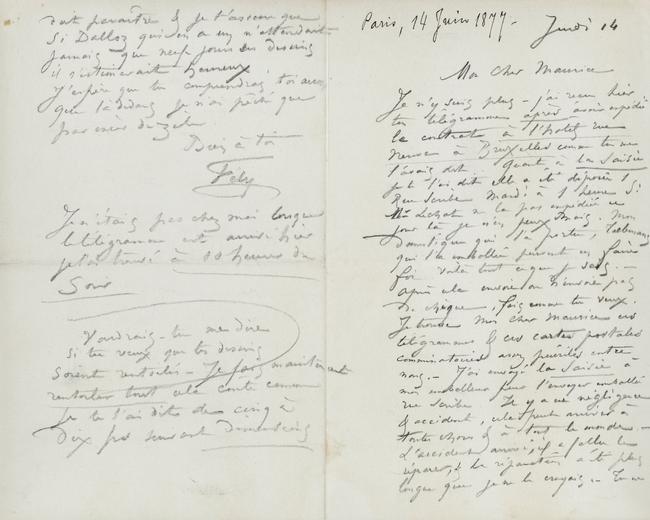 Paris, 14 Juin 1877.- Jeudi 14
Mon cher Maurice
Je n'y suis plus - j'ai reçu hier
ton télégramme après avoir expédié
le contrat à l'hotel rue
Neuve à Bruxelles comme tu me
l'avais dit. Quant à la Saisie
je t'ai dit elle a été déposée 1
Rue Scribe Mardi à 1 heure Si
ne l'a pas expédiée ce
jour là je n'en peux mais. Mon
domestique qui l'a portée,
qui l'a emballée peuvent en faire
foi voilà tout ce que je sais. -
Après cela envoie ou n'envoie pas
de chèque, fais comme tu veux.
Je trouve mon cher Maurice ces
télégrammes & ces cartes postales
comminatoires assez pueriles entre
nous. - J'ai envoyé la Saisie à
mon emballeur pour l'envoyer emballé
rue Scribe. Il y a eu négligence
& accident, cela peut arriver à
toute chose & à tout le monde -
L'accident arrivé, il a fallu le
réparer, & la réparation a été plus
longue que je ne le croyais. - Tu ne
doit paraître & je t'assure que
Si Dalloz qui en a un n'attendait
jamais que neuf jours un dessin
il s'estimerait heureux
J'espère que tu comprendras toi aussi
que là dedans je n'ai péché que
par excès de zèle
Bien à toi
Fély
Je n'étais pas chez moi lorsque
le télégramme est arrivé hier
je l'ai trouvé à 10 heures du
Soir
Voudrais-tu me dire
Si tu veux que tes dessins
soient rentoilés - Je fais maintenant
rentoiler tout cela coute comme
je te l'ai dit de cinq à
dix frs suivant dimensions